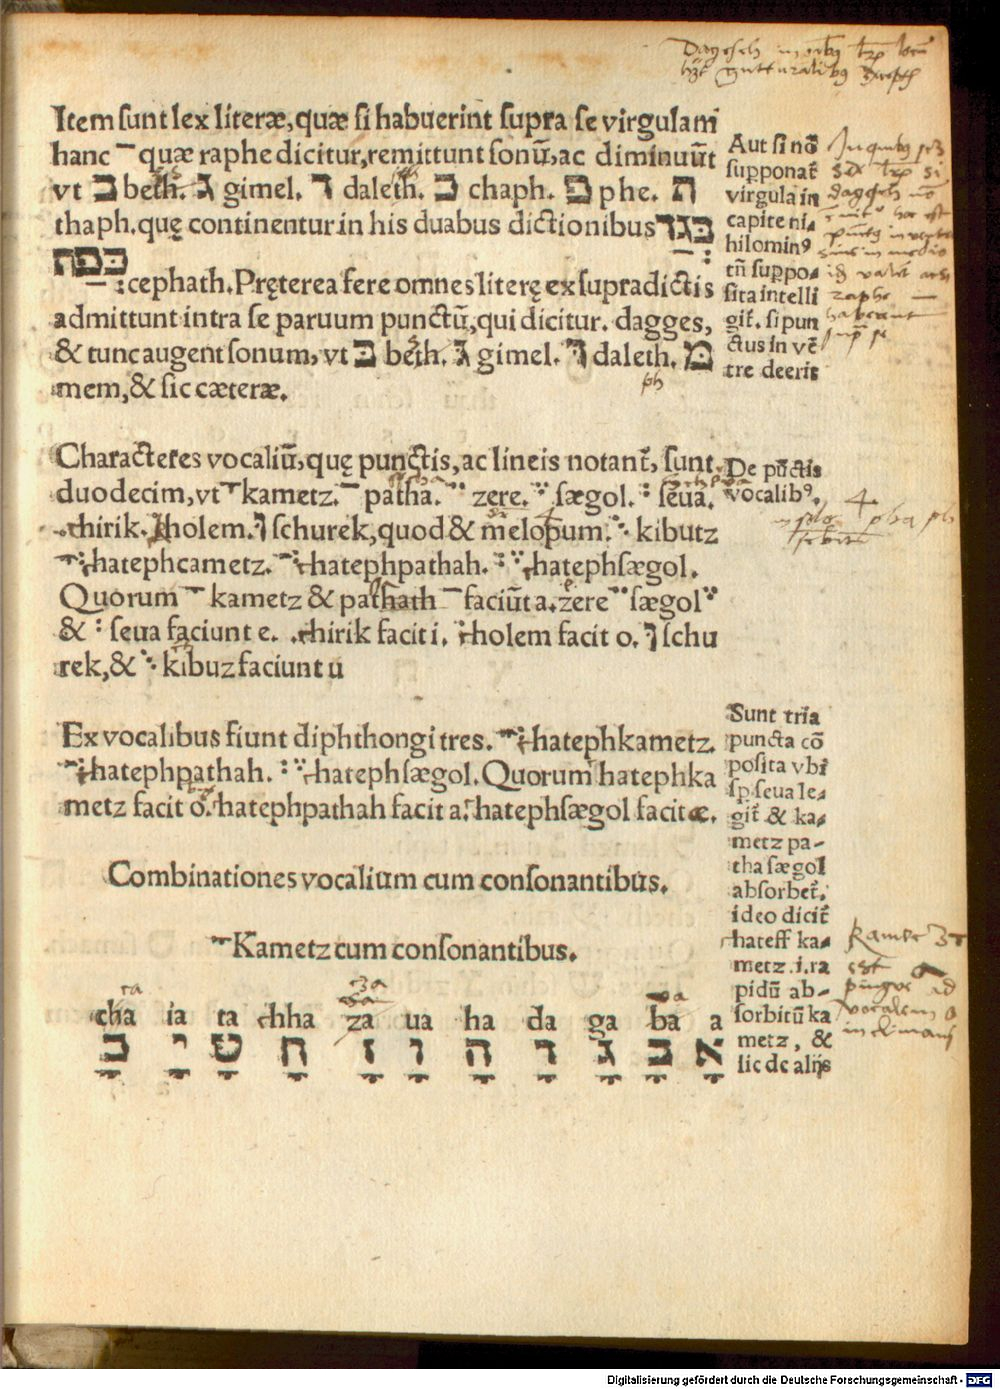 Item sunt sex literæ, quæ si habuerint supra se virgulam
hanc ¯ quæ raphe dicitur, remittunt sonū, ac diminuūt
vt ב beth. ג gimel. ד daleth. כ chaph. פ phe. ת
thaph. quę continentur in his duabus dictionibus בּגַד
כּפַת
cephath. Pręterea fere omnes literę ex supradictis
admittunt intra se paruum punctū, qui dicitur. dagges,
& tunc augent sonum, vt בּ beth. גּ gimel. דּ daleth. מּ
mem, & sic cæteræ.
Aut si nō
supponat̄
virgula in
capite ni-
hilominꝰ
tn̄ suppo-
sita intelli
git̄. si pun
ctus in vē
tre deerit
Characteres vocaliū, quę punctis, ac lineis notant̄, sunt
duodecim, vt ָ kametz. ַ patha. ֵ zere. ֶ sægol. ְ seua.
ִ chirik. ֹ cholem. וּ schurek, quod & melopum. ֻ kibutz
ֳ chatephcametz. ֲ chatephpathah. ֱ chatephsægol.
Quorum ָ kametz & pathath ַ faciūt a. zere ֵ sægol ֶ
& ְ seua faciunt e. ִ chirik facit i. ֹ cholem facit o. וּ schu
rek, & ֻ kibuz faciunt u
De pūctis
vocalibꝰ.
Ex vocalibus fiunt diphthongi tres. ֳ chatephkametz.
ֲ chatephpathah. ֱ chatephsægol. Quorum hatephka
metz facit o. chatephpathah facit a. chatephsægol facit æ.
Sunt tria
puncta cō
posita vbi
sp seua le-
git̄ & ka-
metz pa-
tha sægol
absorbet̄.
ideo dicit̄
chateff ka-
metz .i. ra
pidū ab-
sorbitū ka
metz, &
sic de alijs
Combinationes vocalium cum consonantibus.
ָ Kametz cum consonantibus.
cha ia ta chha za ua ha da ga ba a
כָ יָ טָ חָ זָ וָ הָ דָ גָ בָ אָ
Digitalisierung gefördert durch die Deutsche Forschungsgemeinschaft - DFG